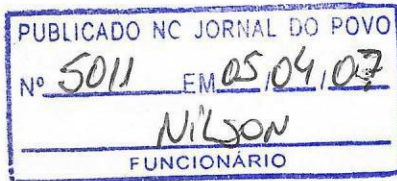 PUBLICADO NC JORNAL DO POVO
Nº 5011 EM 05,04,07
NiLSON
FUNCIONÁRIO